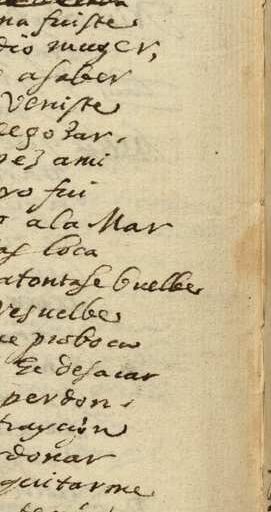 na fuiste
dio muger,
asaber
Veniste
cegozar.
pez ami
ro fui
ala Mar
as loca
atontase buelbe
resuelbe
ue proboca
Ec desacar
perdon.
trayçion
donar
quitarme